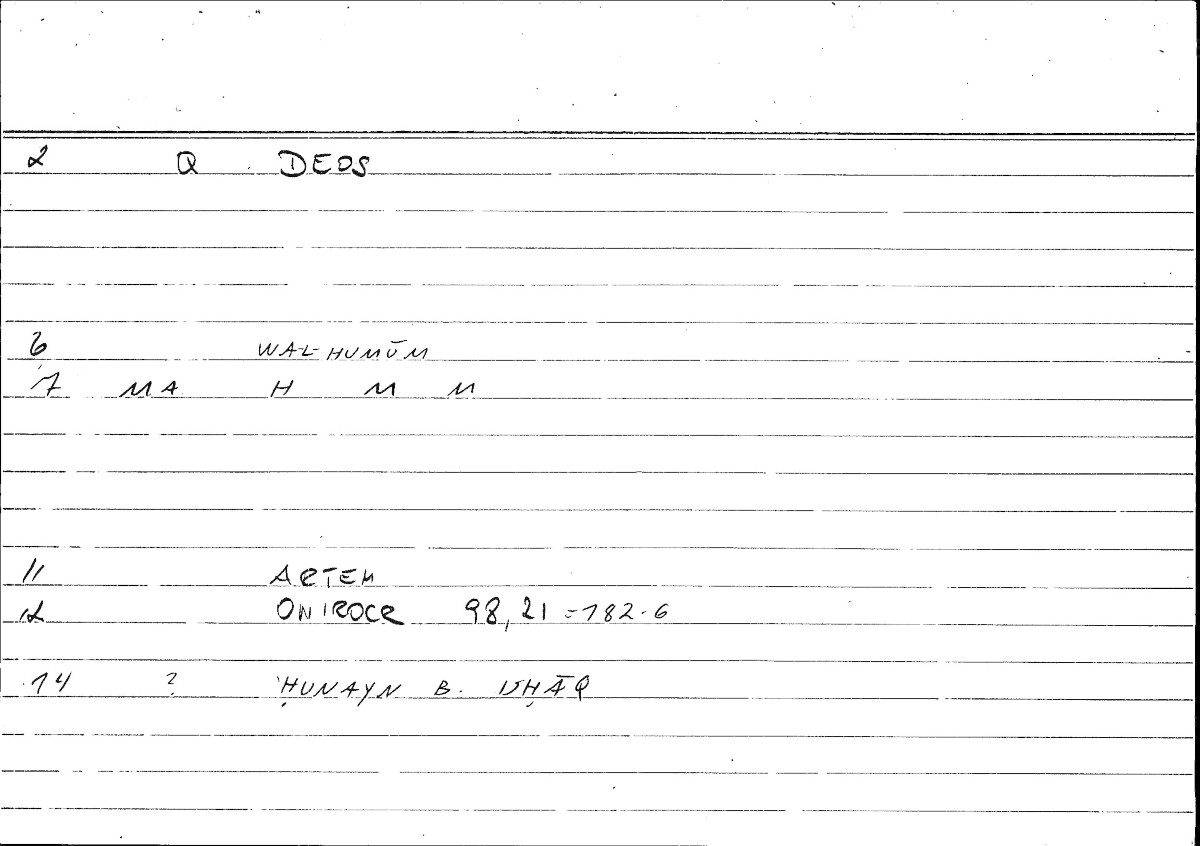 2 Q DEOS
6 WAL-HUMŪM
7 MA H M M
11 ARTEM
12 ONIROCR 98,21 = 182.6
14 ? ḤUNAYN B. ISḤĀQ